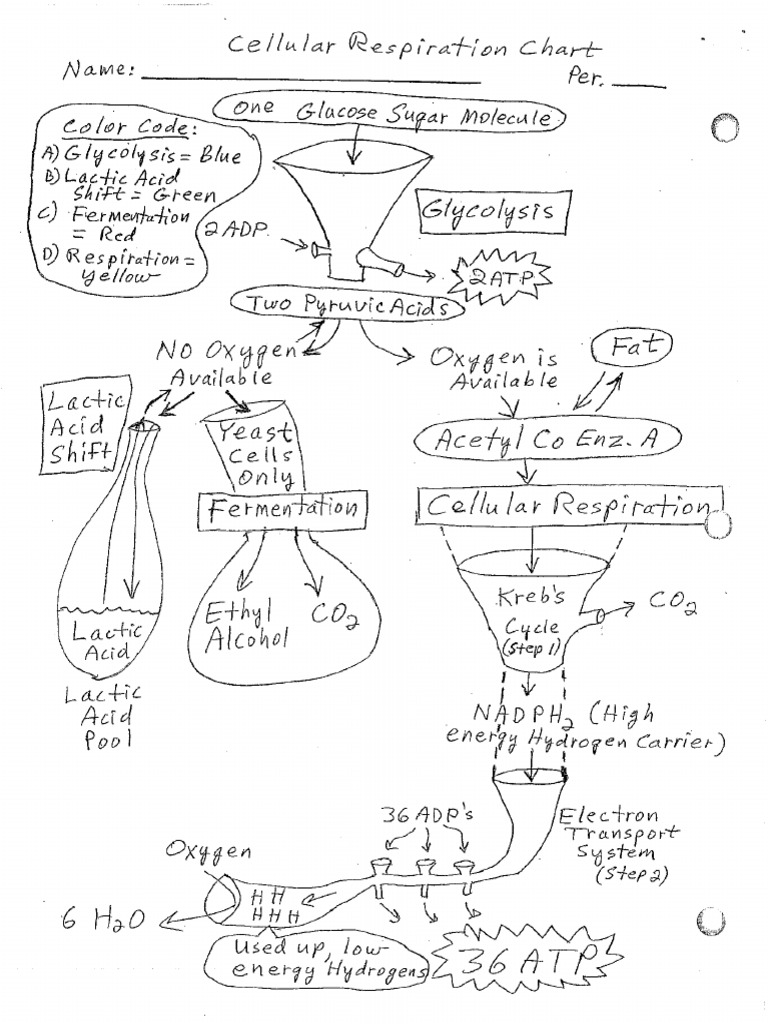 Cellular Respiration Chart
Name: ____________ Per. ____
One Glucose Sugar Molecule
Color Code:
A) Glycolysis = Blue
B) Lactic Acid
Shift = Green
C) Fermentation
= Red
D) Respiration =
Yellow
2 ADP
Glycolysis
2 ATP
Two Pyruvic Acids
No Oxygen
Available
Oxygen is
Available
Fat
Lactic
Acid
Shift
Yeast
Cells
Only
Acetyl Co Enz. A
Fermentation
Cellular Respiration
Ethyl
Alcohol
CO2
Kreb's
Cycle
(Step 1)
CO2
Lactic
Acid
Lactic
Acid
Pool
NADPH2 (High
energy Hydrogen Carrier)
36 ADP's
Electron
Transport
System
(Step 2)
Oxygen
H H
H H H
6 H2O
Used up, low-
energy Hydrogens
36 ATP